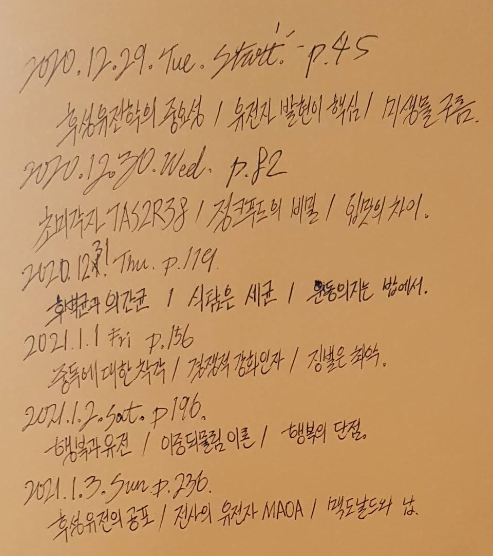 2020.12.29.Tue. Start! - p.45
후성유전학의 중요성 / 유전자 발현이 핵심 / 미생물 구름.
2020.12.30.Wed. p.82
초미각자 TAS2R38 / 정크푸드의 비밀 / 입맛의 차이.
2020.12.31. Thu. p.119
후벽균과 의간균 / 식탐은 세균 / 운동의지는 밥에서.
2021.1.1 Fri p.156
중독에 대한 착각 / 경쟁적 강화인자 / 징벌은 최악.
2021.1.2.Sat. p196.
행복과 유전 / 이중되물림 이론 / 행복의 단점.
2021.1.3.Sun.p.236.
후성유전의 공포 / 전사의 유전자 MAOA / 맥도날드와 납.